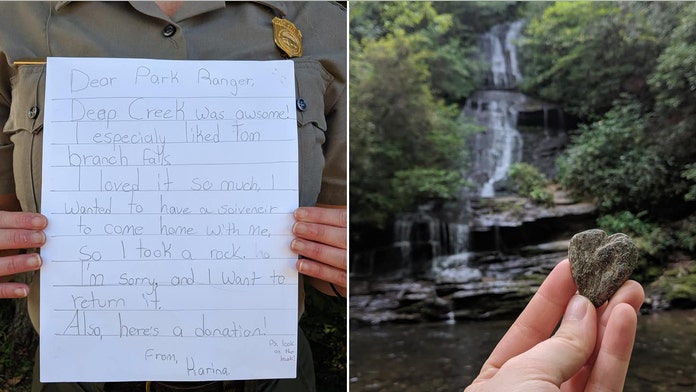 Dear Park Ranger,
Deep Creek was awsome!
I especially liked Tom
branch falls
I loved it so much, I
wanted to have a soiveneir
to come home with me,
so I took a rock.
I'm sorry, and I want to
return it.
Also, here's a donation!
From,
Karina
Ps. look
on the
back!